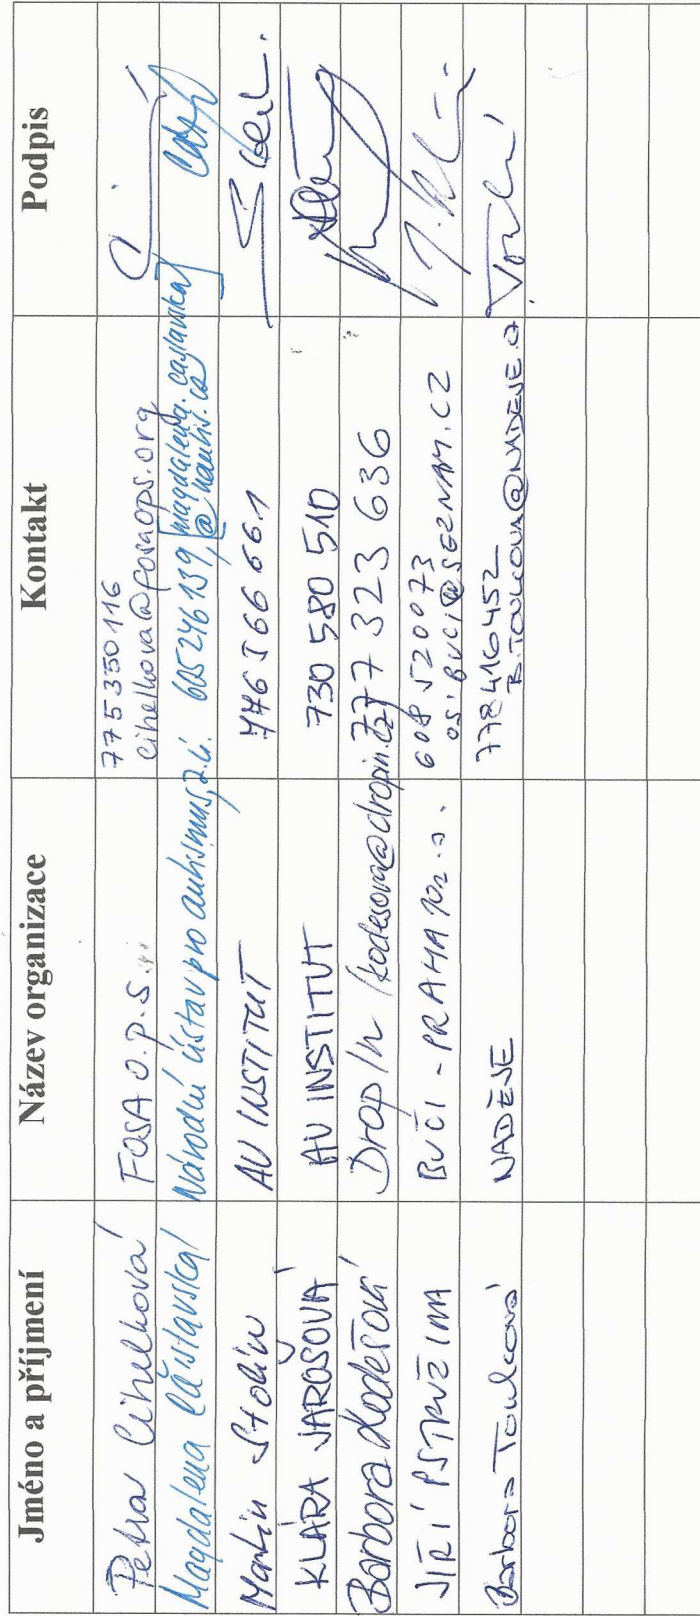 Jméno a příjmení Název organizace Kontakt Podpis
Petra Cihelková FOSA o.p.s. 775350116
cihelkova@fosaops.org
Magdalena Čáslavská Národní ústav pro autismus, z.ú. 605246139, magdalena.caslavska
@nautis.cz
Martin Stolín AV INSTITUT 776 566 661
KLÁRA JAROŠOVÁ AV INSTITUT 730 580 510
Barbora Kodešová Drop In kodesova@dropin.cz, 777 323 636
JIŘÍ PSTRUŽINA BUČI - PRAHA 608 520073
OS.BUCI@SEZNAM.CZ
Barbora Toulcová NADĚJE 778416452
B.TOULCOVA@NADEJE.CZ